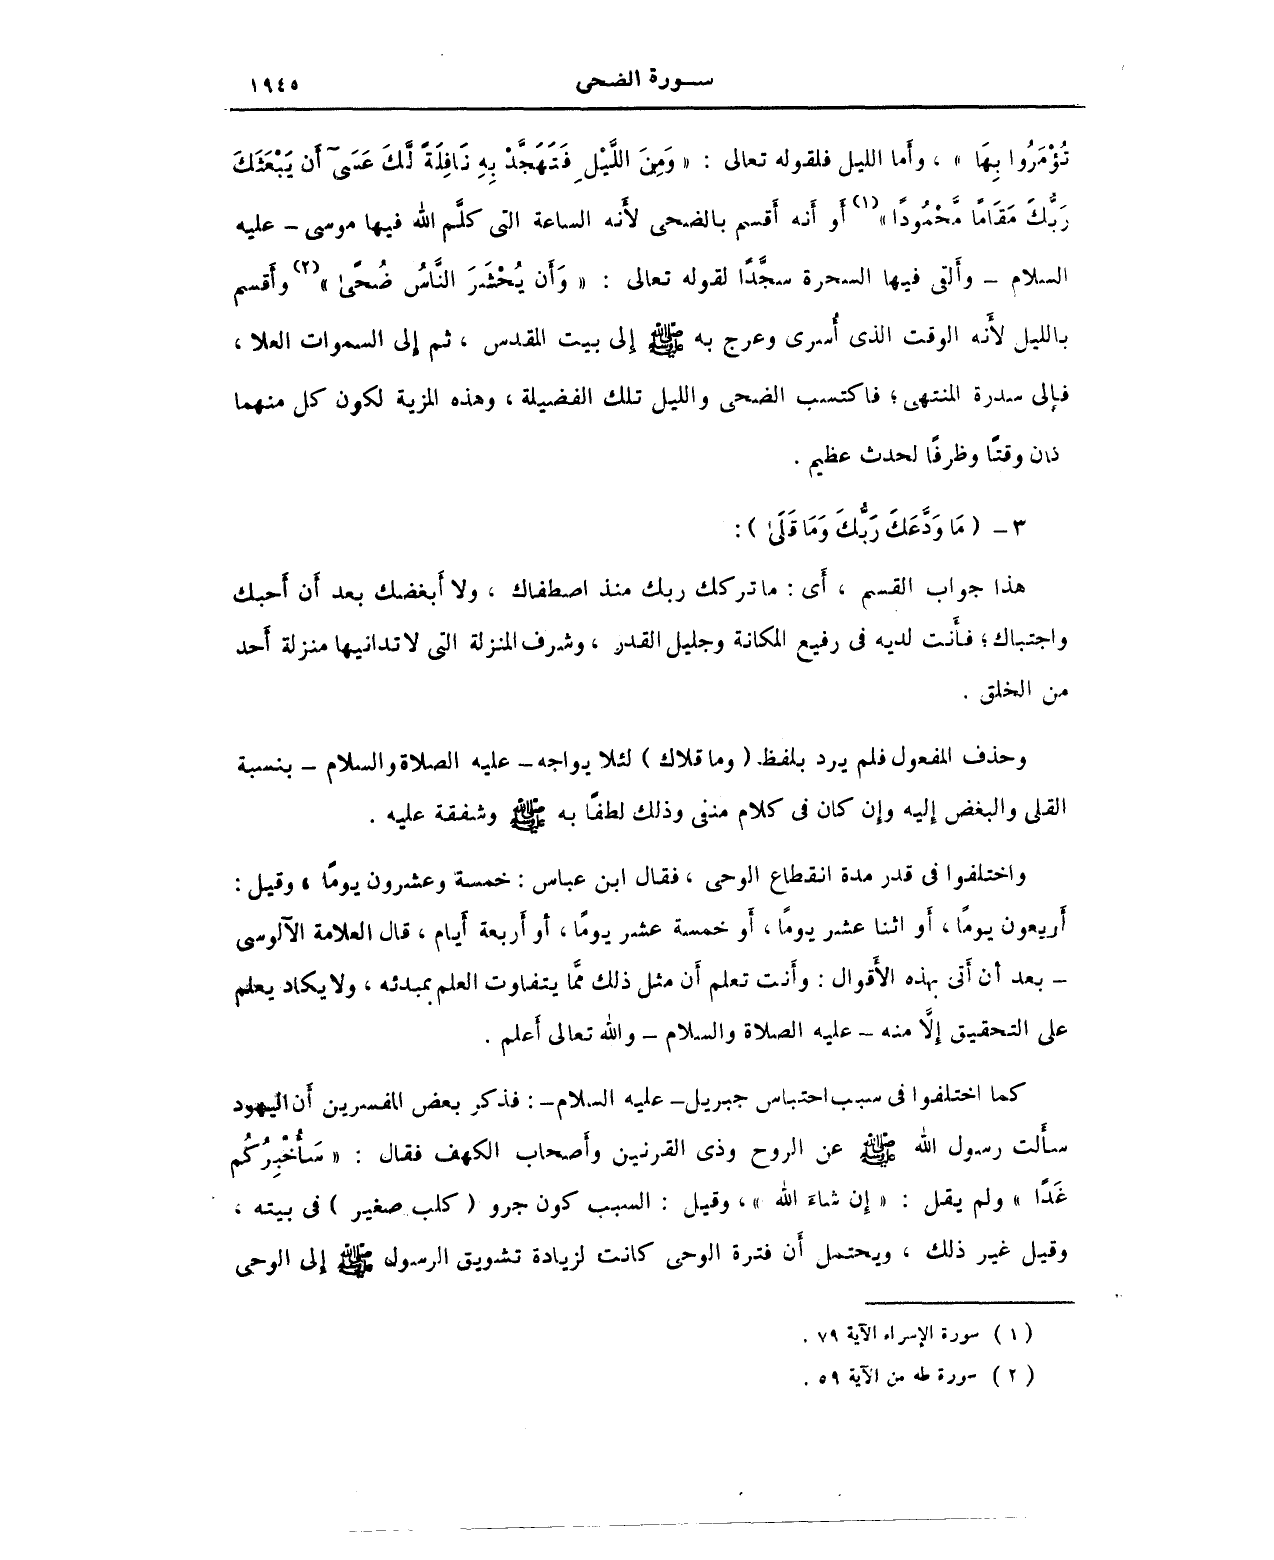 سورة الضحى ١٩٤٥
تُؤْمَرُوا بِهَا » ، وأما الليل فلقوله تعالى : « وَمِنَ اللَّيْلِ فَتَهَجَّدْ بِهِ نَافِلَةً لَّكَ عَسَىٰٓ أَن يَبْعَثَكَ
رَبُّكَ مَقَامًا مَّحْمُودًا »(١) أو أنه أقسم بالضحى لأنه الساعة التى كلَّم الله فيها موسى – عليه
السلام – وألقى فيها السحرة سجَّدًا لقوله تعالى : « وَأَن يُحْشَرَ النَّاسُ ضُحًى »(٢) وأقسم
بالليل لأَنه الوقت الذى أُسرى وعرج به ﷺ إلى بيت المقدس ، ثم إلى السموات العلا ،
فإلى سدرة المنتهى ؛ فاكتسب الضحى والليل تلك الفضيلة ، وهذه المزية لكون كل منهما
كان وقتًا وظرفًا لحدث عظيم .
٣ – ( مَا وَدَّعَكَ رَبُّكَ وَمَا قَلَىٰ ) :
هذا جواب القسم ، أَى : ما تركك ربك منذ اصطفاك ، ولا أَبغضك بعد أن أَحبك
واجتباك ؛ فأَنت لديه فى رفيع المكانة وجليل القدر ، وشرف المنزلة التى لا تدانيها منزلة أَحد
من الخلق .
وحذف المفعول فلم يرد بلفظ ( وما قلاك ) لئلا يواجه – عليه الصلاة والسلام – بنسبة
القلى والبغض إليه وإن كان فى كلام منفى وذلك لطفًا به ﷺ وشفقة عليه .
واختلفوا فى قدر مدة انقطاع الوحى ، فقال ابن عباس : خمسة وعشرون يومًا ، وقيل :
أَربعون يومًا ، أَو اثنا عشر يومًا ، أَو خمسة عشر يومًا ، أو أَربعة أَيام ، قال العلامة الآلوسى
– بعد أن أَتى بهذه الأَقوال : وأَنت تعلم أن مثل ذلك ممَّا يتفاوت العلم بمبدئه ، ولا يكاد يعلم
على التحقيق إلَّا منه – عليه الصلاة والسلام – والله تعالى أَعلم .
كما اختلفوا فى سبب احتباس جبريل – عليه السلام – : فذكر بعض المفسرين أَن اليهود
سأَلت رسول الله ﷺ عن الروح وذى القرنين وأَصحاب الكهف فقال : « سَأُخْبِرُكُم
غَدًا » ولم يقل : « إن شاءَ الله » ، وقيل : السبب كون جرو ( كلب صغير ) فى بيته ،
وقيل غير ذلك ، ويحتمل أَن فترة الوحى كانت لزيادة تشويق الرسول ﷺ إلى الوحى
( ١ ) سورة الإسراء الآية ٧٩ .
( ٢ ) سورة طه من الآية ٥٩ .